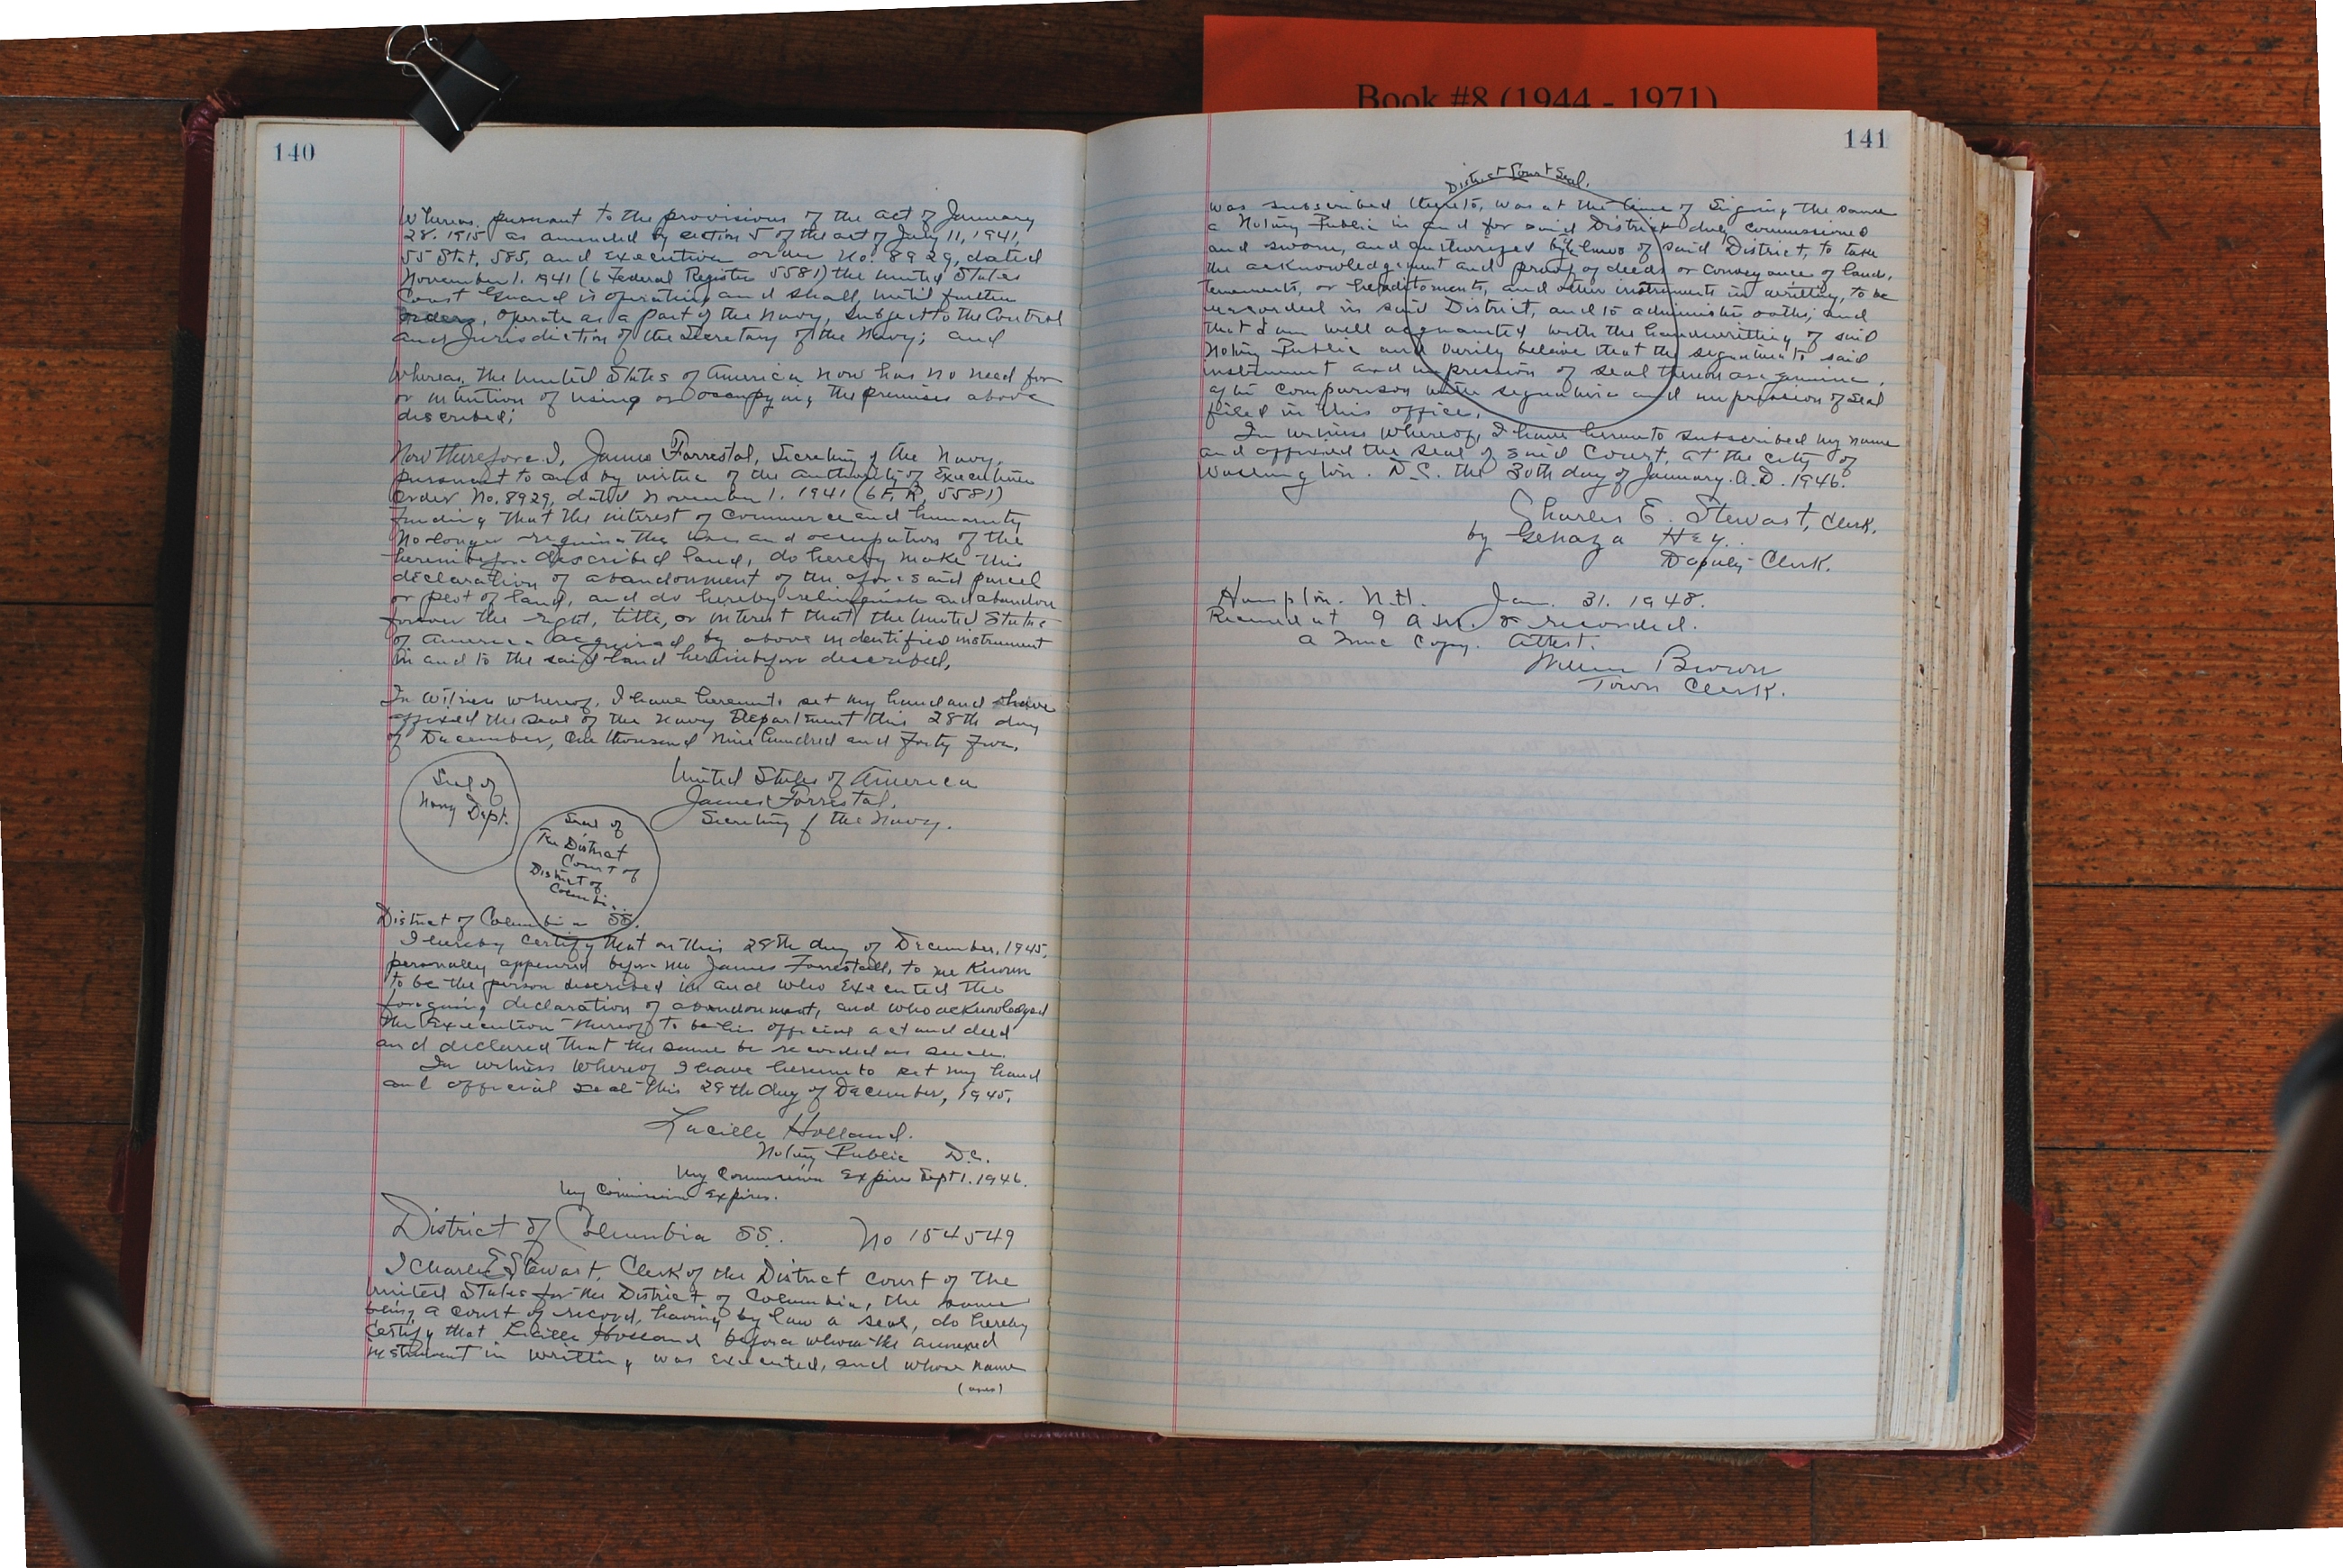 Book #8 (1944 - 1971)
140
Whereas, pursuant to the provisions of the act of January
28. 1915 as amended by section 5 of the act of July 11, 1941,
55 Stat. 585, and executive order No. 8929, dated
November 1. 1941 (6 Federal Register 5581) the United States
Coast Guard is operating and shall, until further
orders, operate as a part of the Navy, subject to the Control
and Jurisdiction of the Secretary of the Navy; and
Whereas, the United States of America now has no need for
or intention of using or occupying the premises above
described;
Now therefore I, James Forrestal, Secretary of the Navy,
pursuant to and by virtue of the authority of Executive
Order No. 8929, dated November 1. 1941 (6 F.R. 5581)
finding that the interest of commerce and humanity
no longer require the use and occupation of the
hereinbefore described land, do hereby make this
declaration of abandonment of the aforesaid parcel
or plot of land, and do hereby relinquish and abandon
forever the right, title, or interest that the United States
of America acquired by above indentified instrument
in and to the said land hereinbefore described,
In Witness whereof, I have hereunto set my hand and have
affixed the seal of the Navy Department this 28th day
of December, One thousand nine hundred and forty five.
Seal of
Navy Dept.
United States of America
James Forrestal,
Secretary of the Navy.
Seal of
The District
Court of
District of
Columbia
District of Columbia SS.
I hereby certify that on this 28th day of December, 1945,
personally appeared before me James Forrestall, to me known
to be the person described in and who executed the
foregoing declaration of abandonment, and who acknowledged
the execution thereof to be his official act and deed
and declared that the same be recorded as such.
In witness whereof I have hereunto set my hand
and official seal this 28th day of December, 1945.
Lucille Holland.
Notary Public D.C.
My Commission Expires Sept 1. 1946.
My Commission Expires.
District of Columbia SS. No 154549
I Charles E Stewart, Clerk of the District Court of the
United States for the District of Columbia, the same
being a court of record, having by law a seal, do hereby
certify that Lucille Holland before whom the annexed
instrument in writting was executed, and whose name
(over)
141
District Court Seal.
was subscribed thereto, was at the time of signing the same
a Notary Public in and for said District duly commissioned
and sworn, and authorized by the laws of said District, to take
the acknowledgement and proof of deeds or conveyance of land,
tenements, or hereditements, and other instruments in writing, to be
recorded in said District, and to administer oaths; and
that I am well acquainted with the handwritting of said
Notary Public and verily believe that the signature to said
instrument and impression of seal thereon are genuine,
after comparison with signature and impression of seal
filed in this office.
In witness whereof, I have hereunto subscribed my name
and affixed the seal of said Court, at the city of
Washington. D.C. the 30th day of January. A.D. 1946.
Charles E. Stewart, Clerk.
by Hey.
Deputy Clerk.
Hampton. N.H. Jan. 31. 1948.
Received at 9 a.m. & recorded.
a true Copy. Attest.
Brown
Town Clerk.